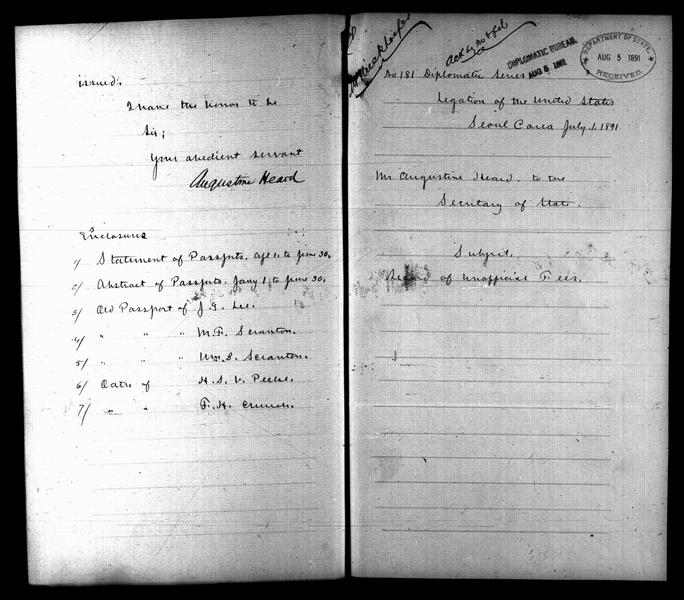 issued.
I have the honor to be
Sir;
Your obedient servant
Augustine Heard
Enclosures
1/ Statement of Passports, Apl 1. to June 30.
2/ Abstract of Passports, Jany 1 to June 30.
3/ Old Passport of J. G. Lee.
4/ " " " M. F. Scranton.
5/ " " " Wm. B. Scranton.
6/ Oaths of H. S. V. Peeke.
7/ " " F. H.
Ack by No 8 Feb
DIPLOMATIC BUREAU,
AUG 5 1891
DEPARTMENT OF STATE,
AUG 5 1891
RECEIVED.
No 181 Diplomatic Series
Legation of the United States
Seoul Corea July 1. 1891
Mr Augustine Heard. to the
Secretary of State.
Subject.
Record of Unofficial Fees.